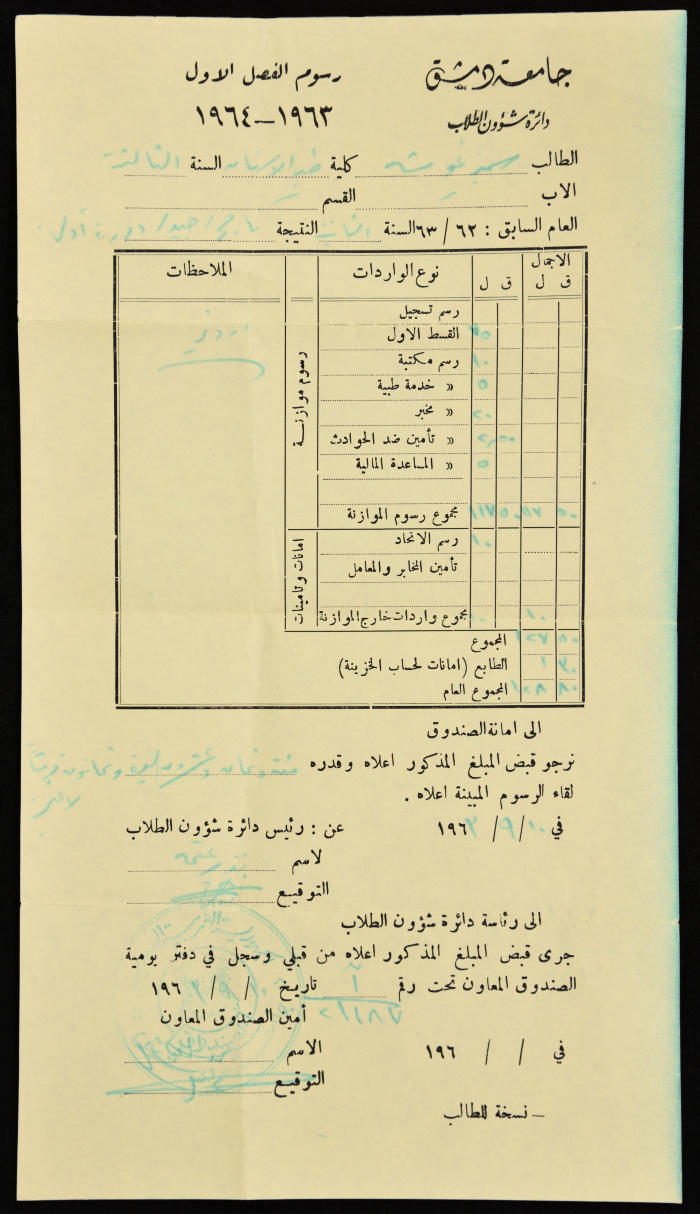 جامعة دمشق
دائرة شؤون الطلاب
رسوم الفصل الاول
١٩٦٣-١٩٦٤
الطالب سمير غوشه كلية طب الاسنان السنة الثالثة
الاب القسم
العام السابق : ٦٢ / ٦٣ السنة الثانية النتيجة ناجح / جيد / دورة أولى
الاجمال
ق ل ق ل نوع الواردات الملاحظات
رسوم موازنة
رسم تسجيل
القسط الاول ٧٥
رسم مكتبة ١٠
« خدمة طبية ٥
« مخبر ٢٠
« تأمين ضد الحوادث ٢,٥٠
« المساعدة المالية ٥
مجموع رسوم الموازنة ١١٧ ٥٠ ١١٧ ٥٠
امانات وتأمينات
رسم الاتحاد ١٠
تأمين المخابر والمعامل
مجموع واردات خارج الموازنة ١٠ ١٠
المجموع ١٢٧ ٥٠
الطابع (امانات لحساب الخزينة) ١ ٣٠
المجموع العام ١٢٨ ٨٠
اردني
الى امانة الصندوق
نرجو قبض المبلغ المذكور اعلاه وقدره مئة وثمان وعشرون ليرة وثمانون قرشاً
لا غير.
لقاء الرسوم المبينة اعلاه .
في ١٠ / ٩ / ١٩٦٣ عن : رئيس دائرة شؤون الطلاب
لاسم
التوقيع
الى رئاسة دائرة شؤون الطلاب
جرى قبض المبلغ المذكور اعلاه من قبلي وسجل في دفتر يومية
الصندوق المعاون تحت رقم آ / ٢١١٨٧ تاريخ ١٠ / ٩ / ١٩٦٣
أمين الصندوق المعاون
في / / ١٩٦ الاسم
التوقيع
– نسخة للطالب